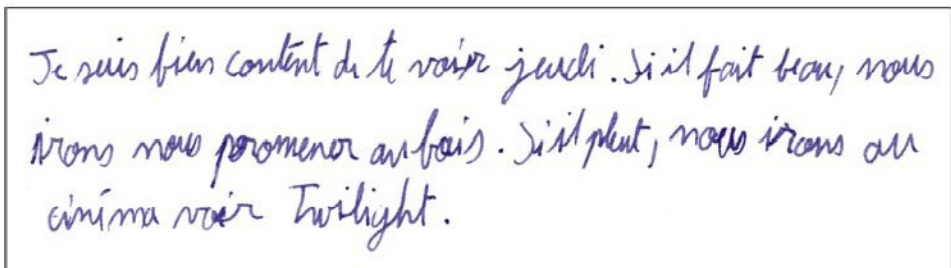 Je suis bien content de te voir jeudi. Si il fait beau, nous
irons nous promener au bois. Si il pleut, nous irons au
cinéma voir Twilight.